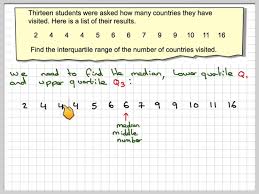 Thirteen students were asked how many countries they have
visited. Here is a list of their results.
2 4 4 4 4 6 6 7 9 9 10 11 16
Find the interquartile range of the number of countries visited.
we need to find the median, lower quartile Q₁
and upper quartile Q₃:
2 4 4 4 5 6 6 7 9 9 10 11 16
median
middle
number